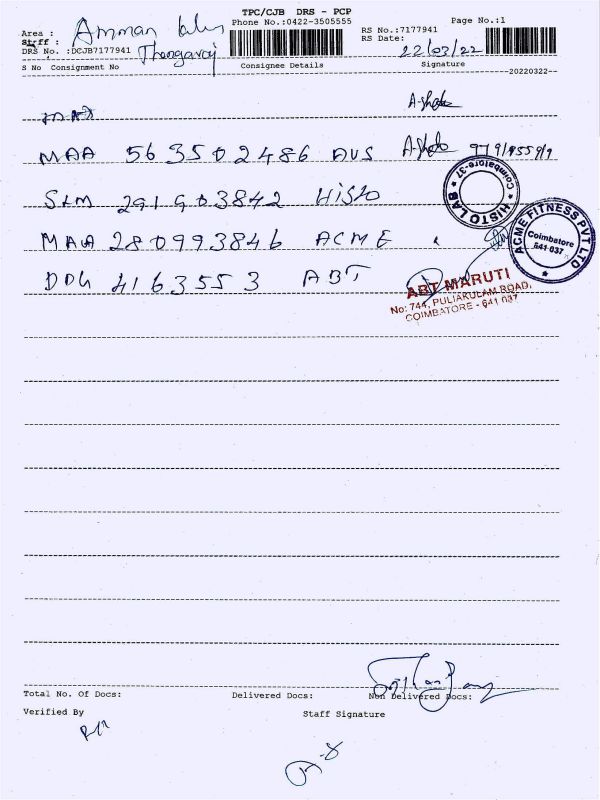 TPC/CJB DRS - PCP
Phone No.:0422-3505555
Page No.:1
Area : Amman
Staff : Thangaraj
RS No.:7177941
RS Date: 22/03/22
DRS No. :DCJB7177941
S No Consignment No Consignee Details Signature
--20220322--
MAA 563502486 AVS
SLM 291903842 Histo
MAA 280993846 ACME
DDG 4163553 ABT
HISTO LAB * Coimbatore-37 *
ACME FITNESS PVT LTD
Coimbatore
641 037
ABT MARUTI
No: 744, PULIAKULAM ROAD,
COIMBATORE - 641 037
Total No. Of Docs: Delivered Docs: Non Delivered Docs:
Verified By Staff Signature